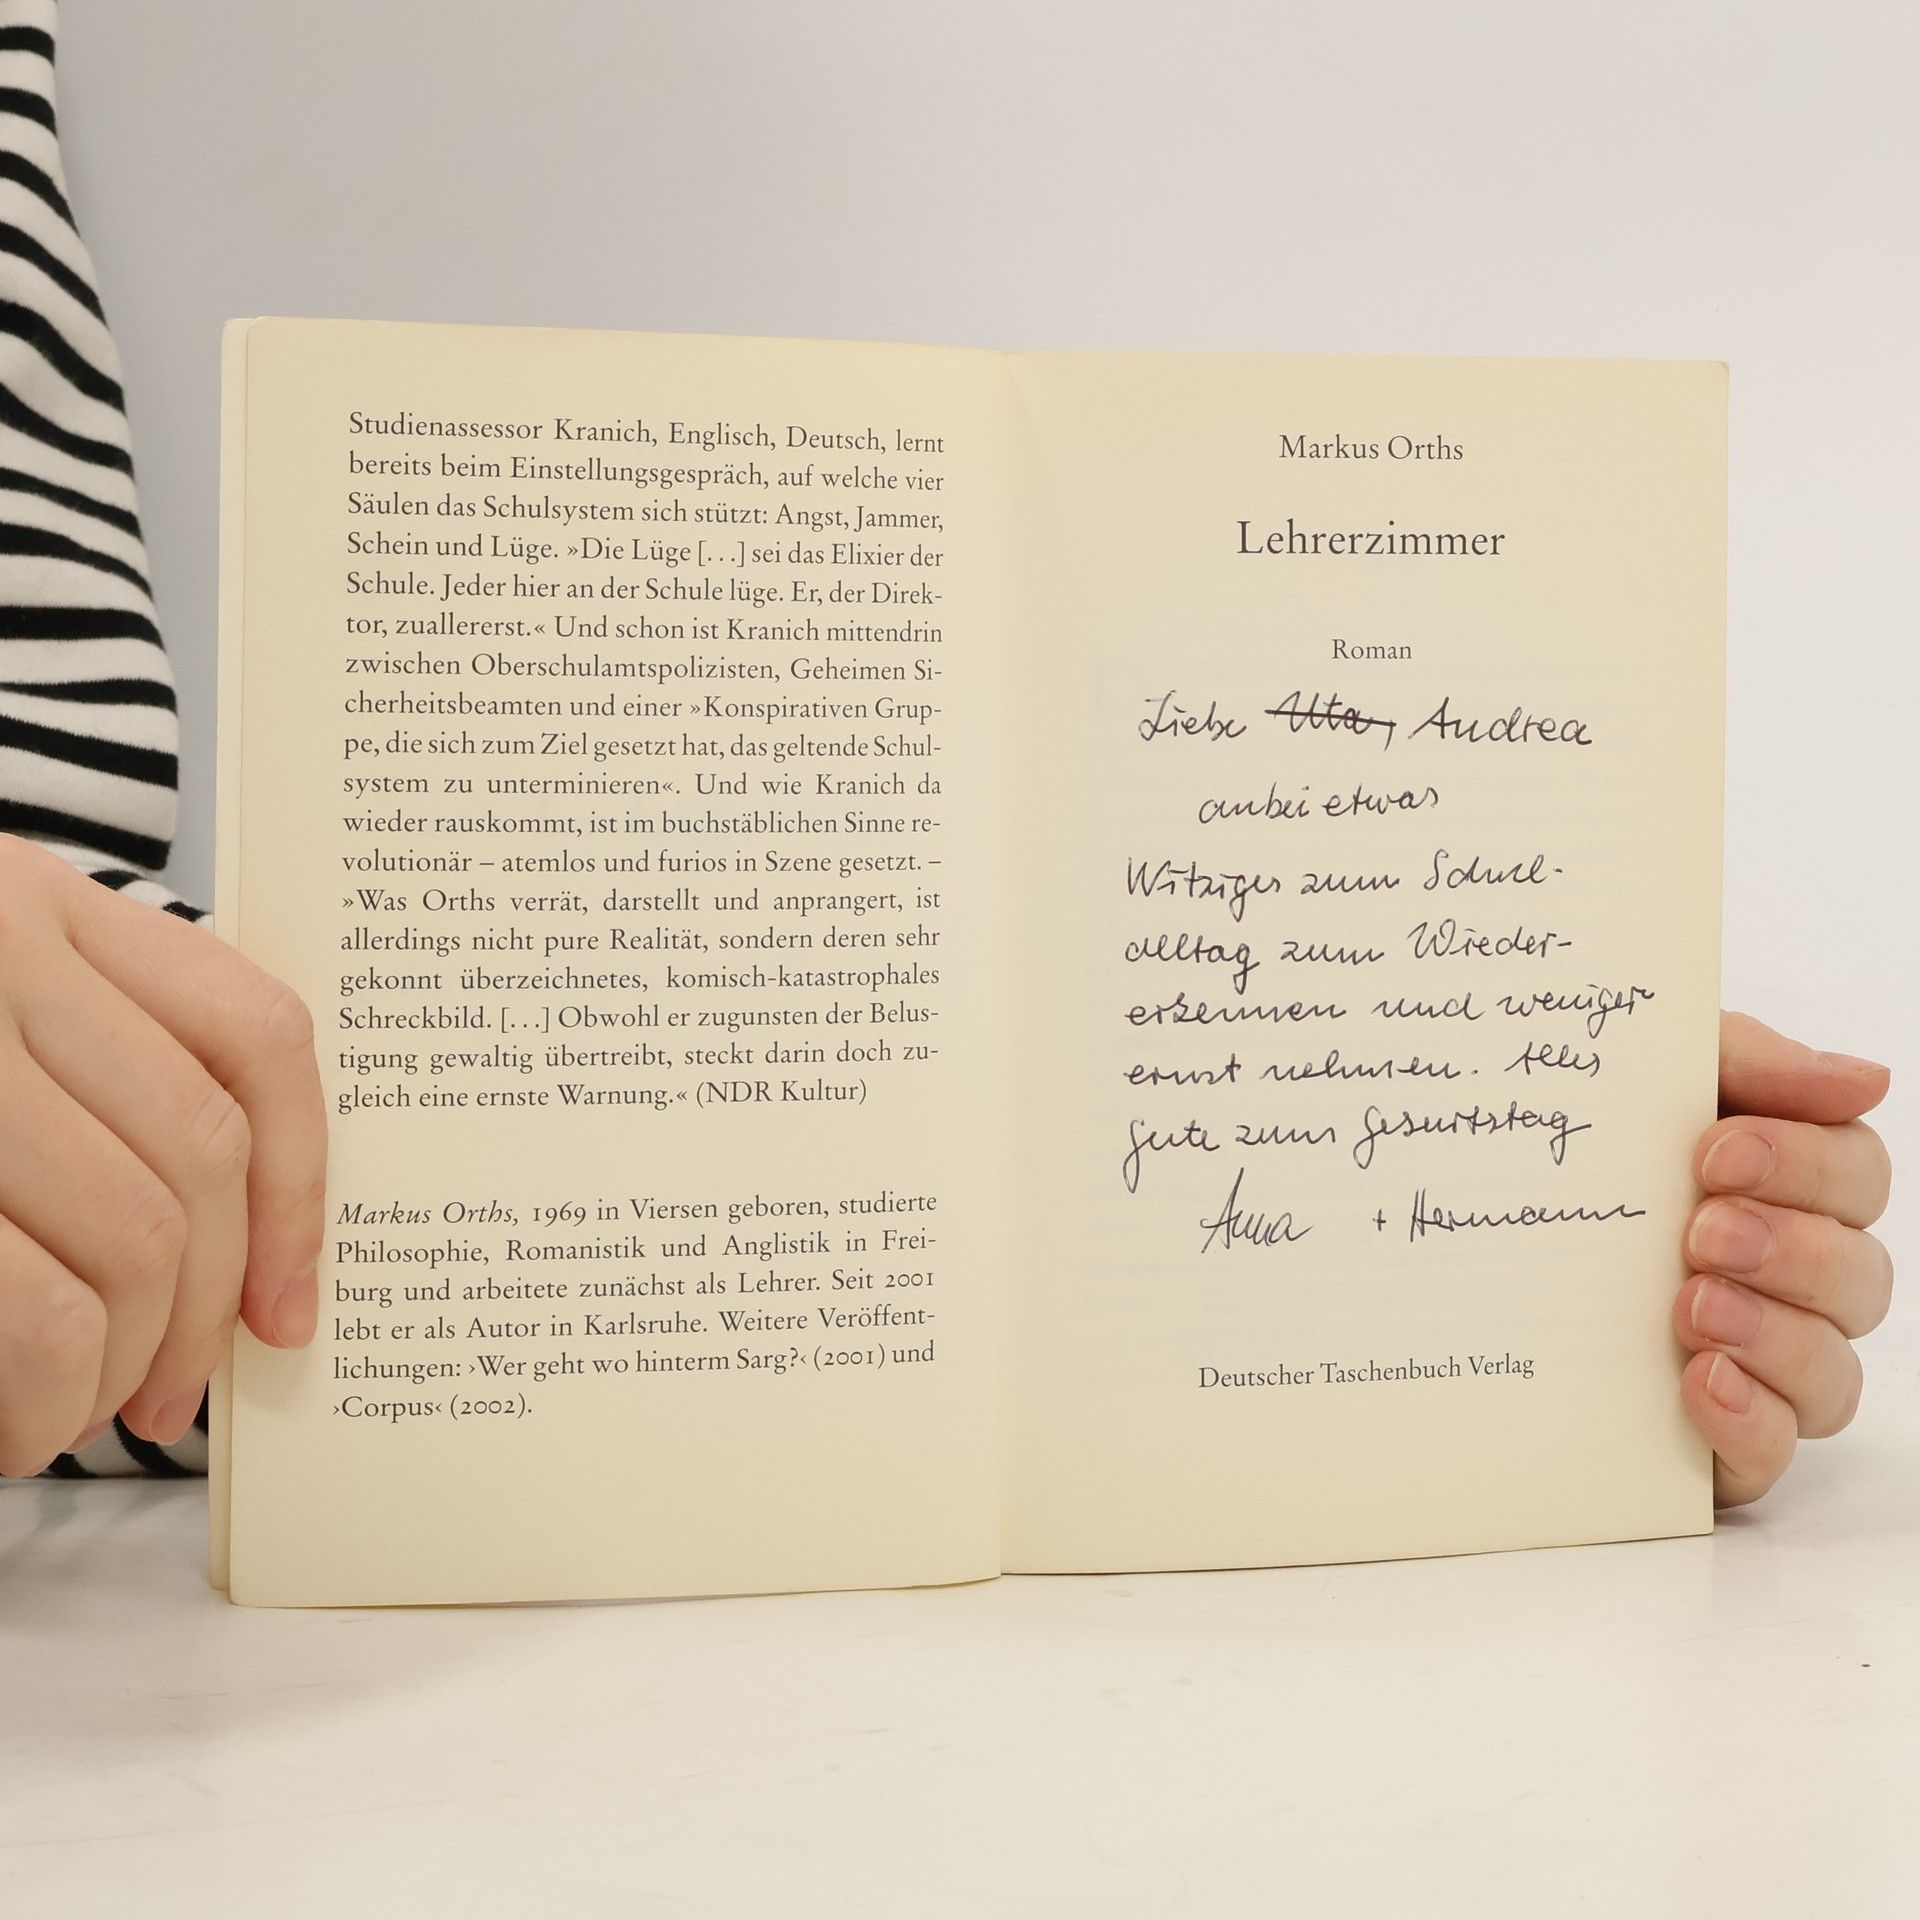 Studienassessor Kranich, Englisch, Deutsch, lernt
bereits beim Einstellungsgespräch, auf welche vier
Säulen das Schulsystem sich stützt: Angst, Jammer,
Schein und Lüge. »Die Lüge [...] sei das Elixier der
Schule. Jeder hier an der Schule lüge. Er, der Direk-
tor, zuallererst.« Und schon ist Kranich mittendrin
zwischen Oberschulamtspolizisten, Geheimen Si-
cherheitsbeamten und einer »Konspirativen Grup-
pe, die sich zum Ziel gesetzt hat, das geltende Schul-
system zu unterminieren«. Und wie Kranich da
wieder rauskommt, ist im buchstäblichen Sinne re-
volutionär – atemlos und furios in Szene gesetzt. –
»Was Orths verrät, darstellt und anprangert, ist
allerdings nicht pure Realität, sondern deren sehr
gekonnt überzeichnetes, komisch-katastrophales
Schreckbild. [...] Obwohl er zugunsten der Belus-
tigung gewaltig übertreibt, steckt darin doch zu-
gleich eine ernste Warnung.« (NDR Kultur)
Markus Orths, 1969 in Viersen geboren, studierte
Philosophie, Romanistik und Anglistik in Frei-
burg und arbeitete zunächst als Lehrer. Seit 2001
lebt er als Autor in Karlsruhe. Weitere Veröffent-
lichungen: ›Wer geht wo hinterm Sarg?‹ (2001) und
›Corpus‹ (2002).
Markus Orths
Lehrerzimmer
Roman
Liebe Uta, Andrea
anbei etwas
Witziges zum Schul-
alltag zum Wieder-
erkennen und weniger
ernst nehmen. Alles
Gute zum Geburtstag
Anna + Hermann
Deutscher Taschenbuch Verlag